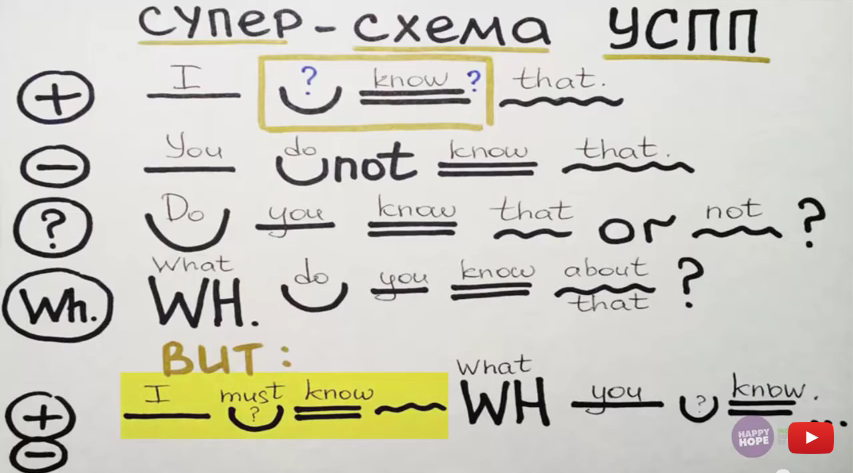 СУПЕР - СХЕМА УСПП
+ I ? know ? that.
- You do not know that.
? Do you know that or not ?
Wh. What WH. do you know about that ?
BUT:
+ - I must ? know What WH you ? know. ...
HAPPY HOPE